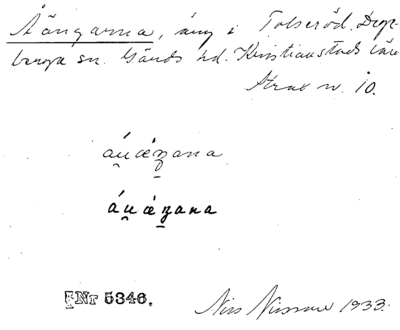 Åängarna, äng i Tolseröd, Dege-
berga sn. Gärds hd. Kristianstads län
Strax n. 10.
áu̯æŋana
áu̯æŋana
Nr 5346.
Nils Nilsson 1933.